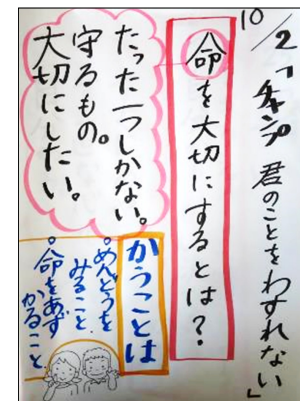 10/2「チャンプ 君のことをわすれない」
命を大切にするとは？
たった一つしかない。
守るもの。
大切にしたい。
かうことは
。めんどうを
みること
。命をあず
かること